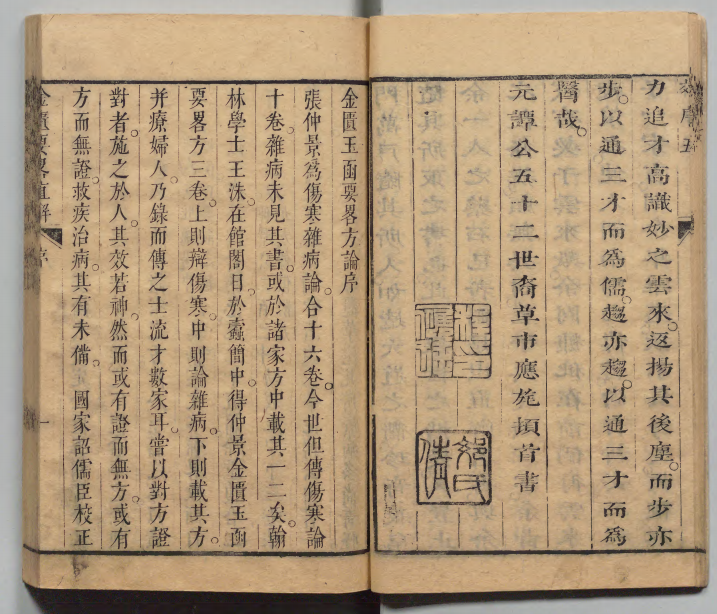 力追才高識妙之雲來。返揚其後塵。而步亦
步。以通三才而爲儒。趨亦趨。以通三才而爲
醫哉。
元譚公五十二世裔草市應旄頓首書
金匱玉函要畧方論序
張仲景爲傷寒雜病論。合十六卷。今世但傳傷寒論
十卷。雜病未見其書。或於諸家方中載其一二矣。翰
林學士王洙。在館閣日。於蠹簡中。得仲景金匱玉函
要畧方三卷。上則辯傷寒。中則論雜病。下則載其方。
并療婦人。乃錄而傳之士流。才數家耳。嘗以對方證
對者。施之於人。其效若神。然而或有證而無方。或有
方而無證。救疾治病。其有未備。國家詔儒臣校正
金匱要畧直解 序 一